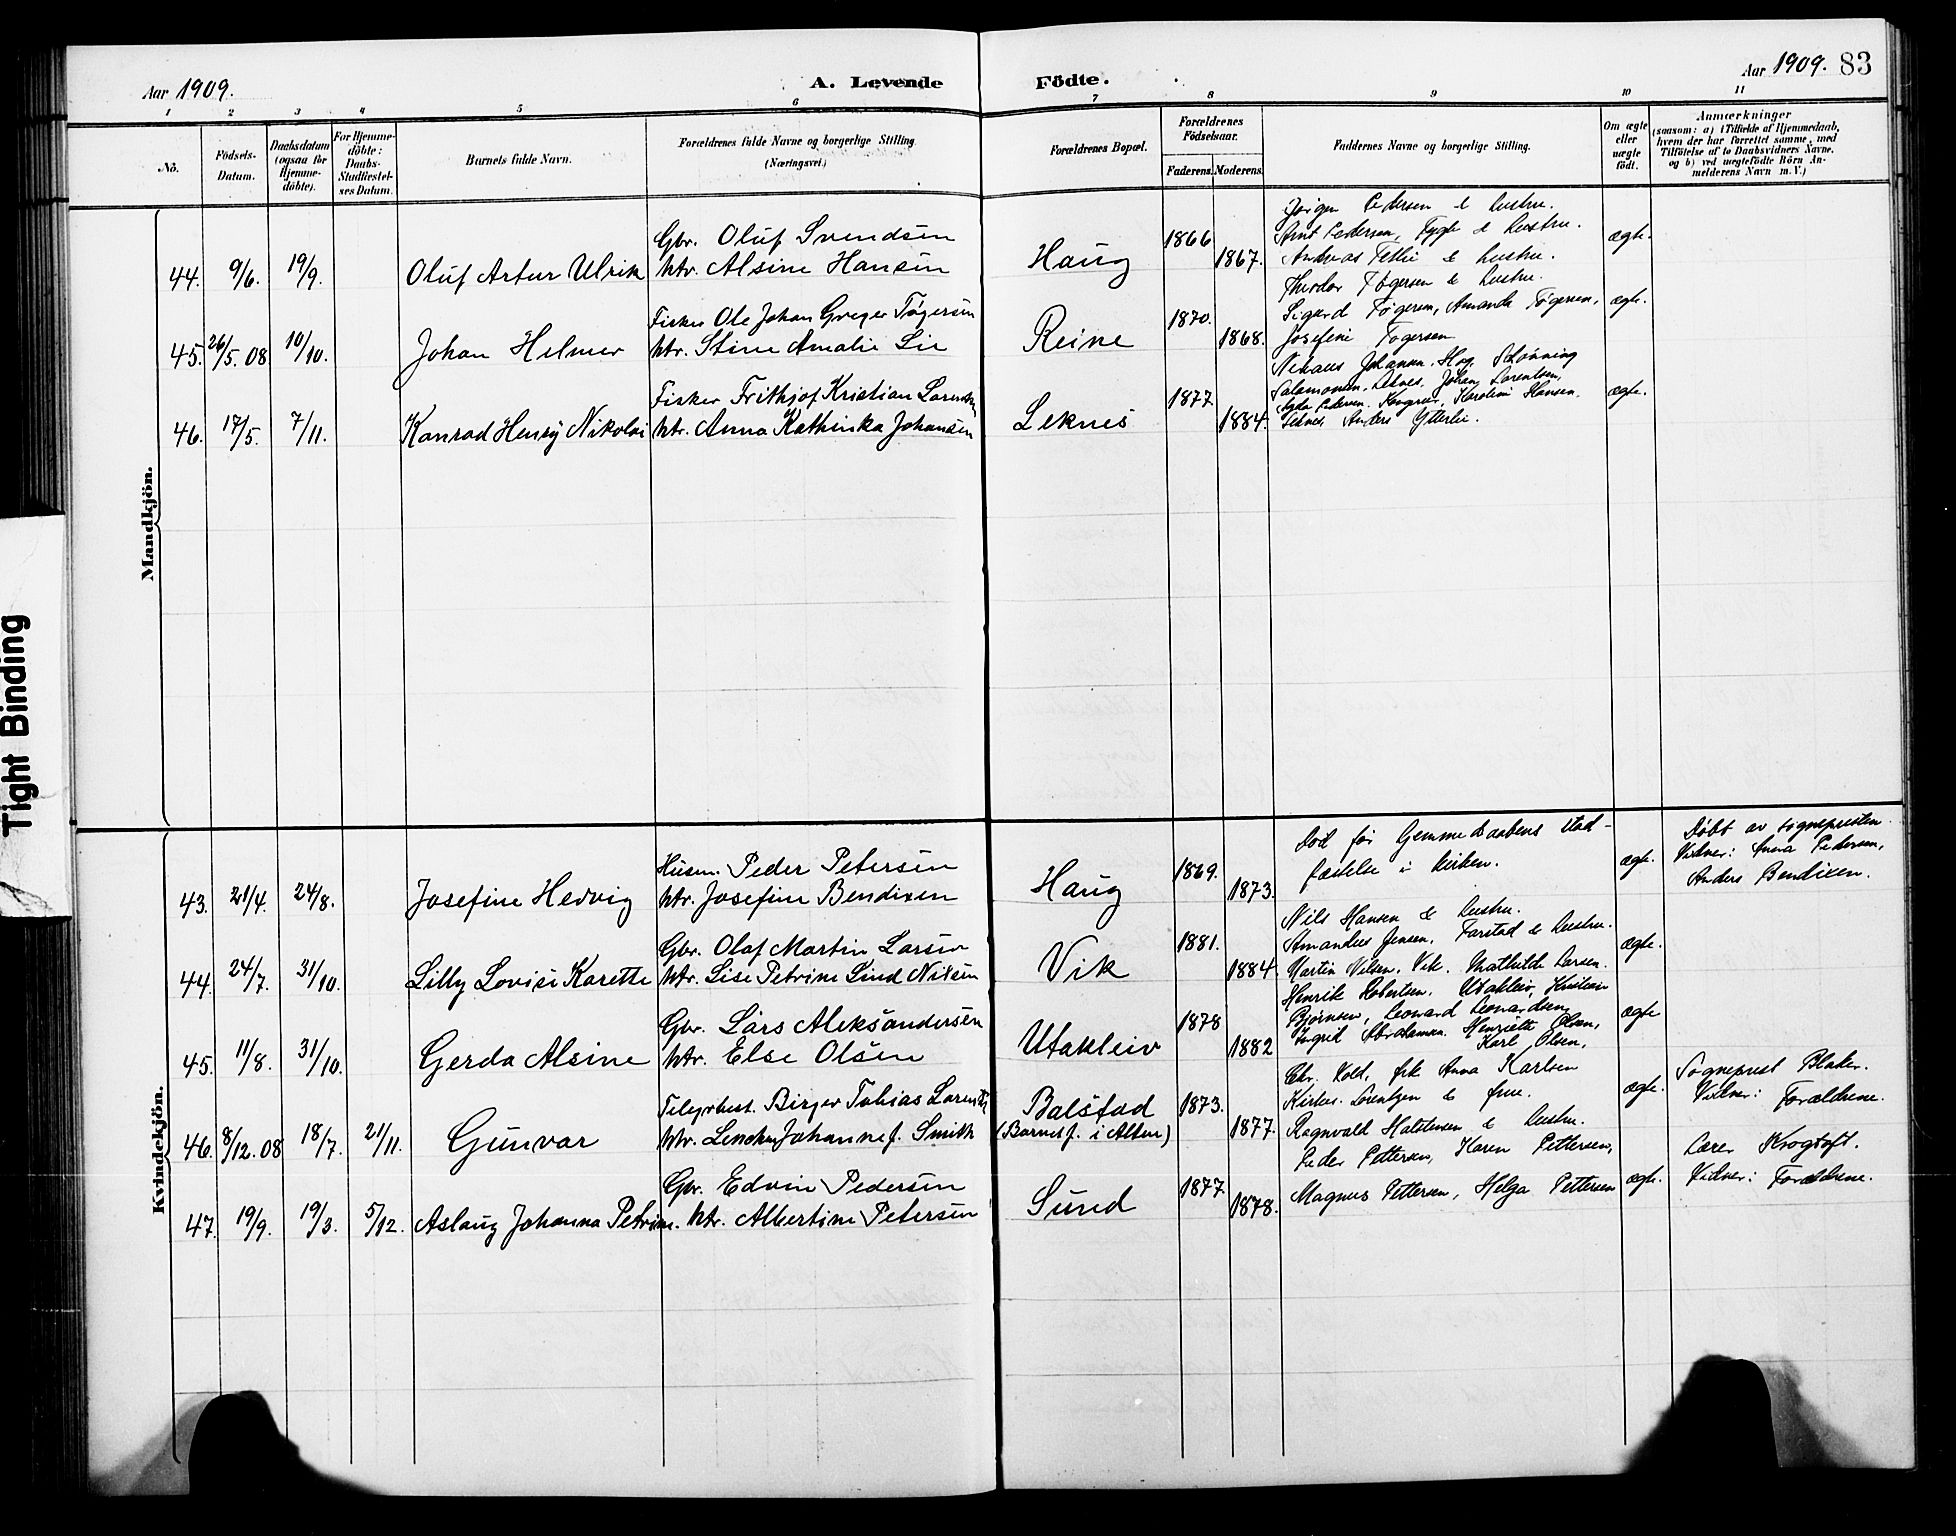 Aar 1909.
A. Levende Födte.
Aar 1909. 83
1 2 3 4 5 6 7 8 9 10 11
No.
Födsels-Datum.
Daabsdatum (ogsaa for Hjemme-döbte).
For Hjemme-döbte: Daabs-Stadfæstel-ses Datum.
Barnets fulde Navn.
Forældrenes fulde Navne og borgerlige Stilling (Næringsvei.)
Forældrenes Bopæl.
Forældrenes Födselsaar.
Faderens. Moderens.
Faddernes Navne og borgerlige Stilling.
Om ægte eller uægte födt.
Anmærkninger
(saasom: a) i Tilfælde af Hjemmedaab,
hvem der har forrettet samme, med
Tilföielse af to Daabsvidners Navne,
og b) ved uægtefödte Börn An-
melderens Navn m. V.)
Mandkjön.
44. 9/6. 19/9. Oluf Artur Ulrik
Gbr. Oluf Svendsen
htr. Alsine Hansen
Haug 1866 1867.
Jørgen Pedersen & hustru.
Arnt Pedersen, Tygle & hustru.
Andreas Tetlie & hustru.
ægte.
45. 26/5.08 10/10. Johan Helmer
Fisker Ole Johan Greger Tøgersen
htr. Stine Amalie Lie
Reine 1870. 1868.
Theodor Tøgersen & hustru.
Sigurd Tøgersen, Amanda Tøgersen,
Josefine Tøgersen
ægte.
46. 17/5. 7/11. Konrad Henry Nikolai
Fisker Frithjof Kristian Lorentsen
htr. Anna Kathinka Johansen
Leknes 1877 1884.
Johansen, Hag,
Salamonsen, Leknes, Johan Lorentsen,
Pedersen. Karoline Hansen.
Leknes, Anders Ytterlie.
ægte.
Kvindekjön.
43. 21/4. 24/8. Josefine Hedvig
Husm. Peder Petersen
htr. Josefine Bendixen
Haug 1869. 1873.
Død før Hjemmedaabens stad-
fæstelse i kirken.
ægte.
Døbt av sognepresten.
Vidner: Anna Pedersen,
Anders Bendixen.
44. 24/7. 31/10. Lilly Lovise Karette
Gbr. Olaf Martin Larsen
htr. Lise Petrine Lind Nilsen
Vik 1881. 1884
Nils Hansen & hustru.
Amandus Jensen, Farstad & hustru.
Martin Nilsen, Vik. Mathilde Larsen.
ægte.
45. 11/8. 31/10. Gerda Alsine
Gbr. Lars Aleksandersen
htr. Else Olsen
Utakleiv 1878 1882
Henrik Robertsen, Utakleiv, Kristian
Bjørnsen, Leonard Leonardsen,
Ingrid Abrahamsen. Henriette Olsen,
Karl Olsen,
ægte
46. 8/12.08 18/7. 21/11. Gunvor
Telegrbest. Birger Tobias Lorentz
htr. Johanne f. Smith
Balstad
(Barnet f. i Alten)
1873. 1877.
Chr. Kold, frk Anna Karlsen
Kirkes. Lorentzen & frue.
Ragnvald Halstensen & hustru.
ægte.
Sogneprest Blaker.
Vidner: Forældrene.
47. 19/9. 19/3. 5/12. Aslaug Johanna Petrine.
Gbr. Edvin Pedersen
htr. Albertine Petersen
Sund 1877 1878.
Peder Pettersen, Karen Pettersen,
Magnus Pettersen, Helga Pettersen
ægte.
Lærer Krogtoft.
Vidner: Forældrene.
Tight Binding